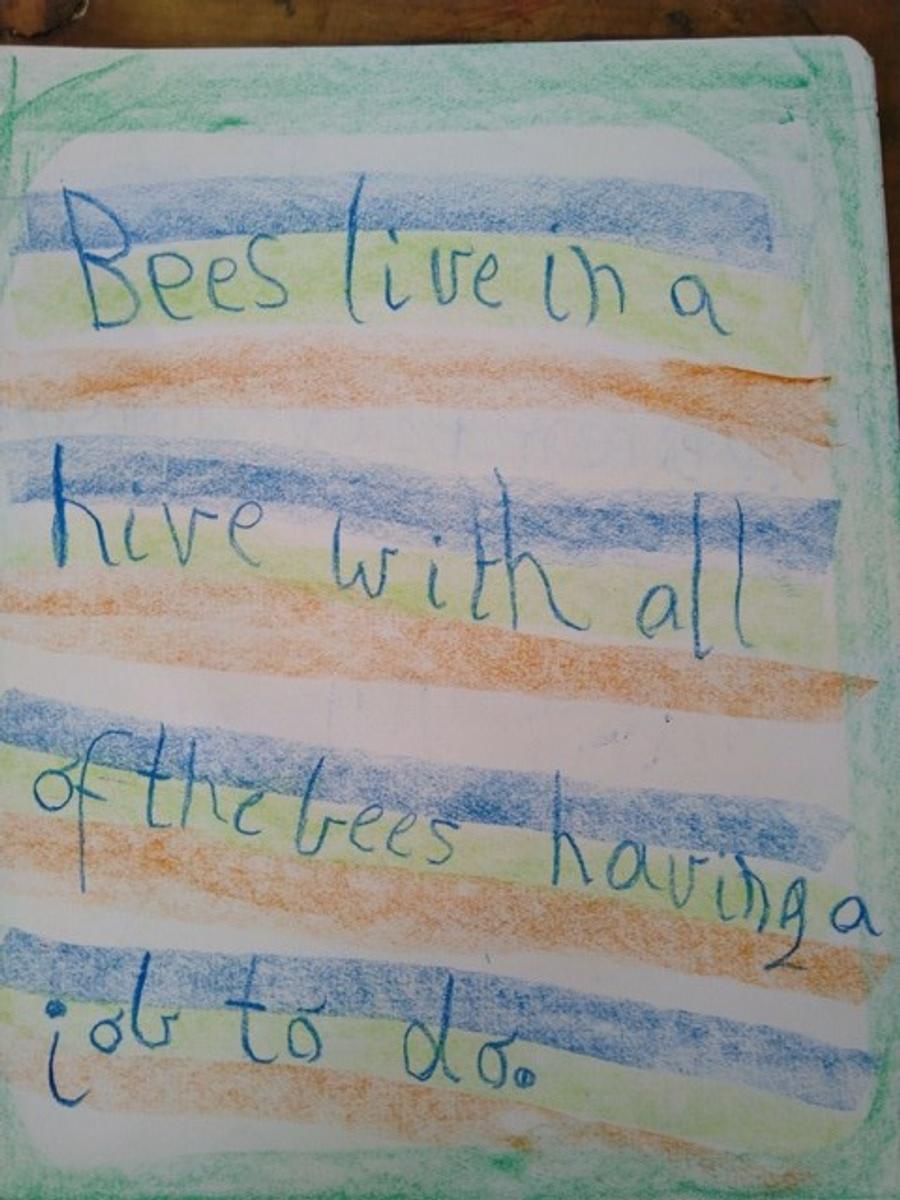 Bees live in a
hive with all
of the bees having a
job to do.